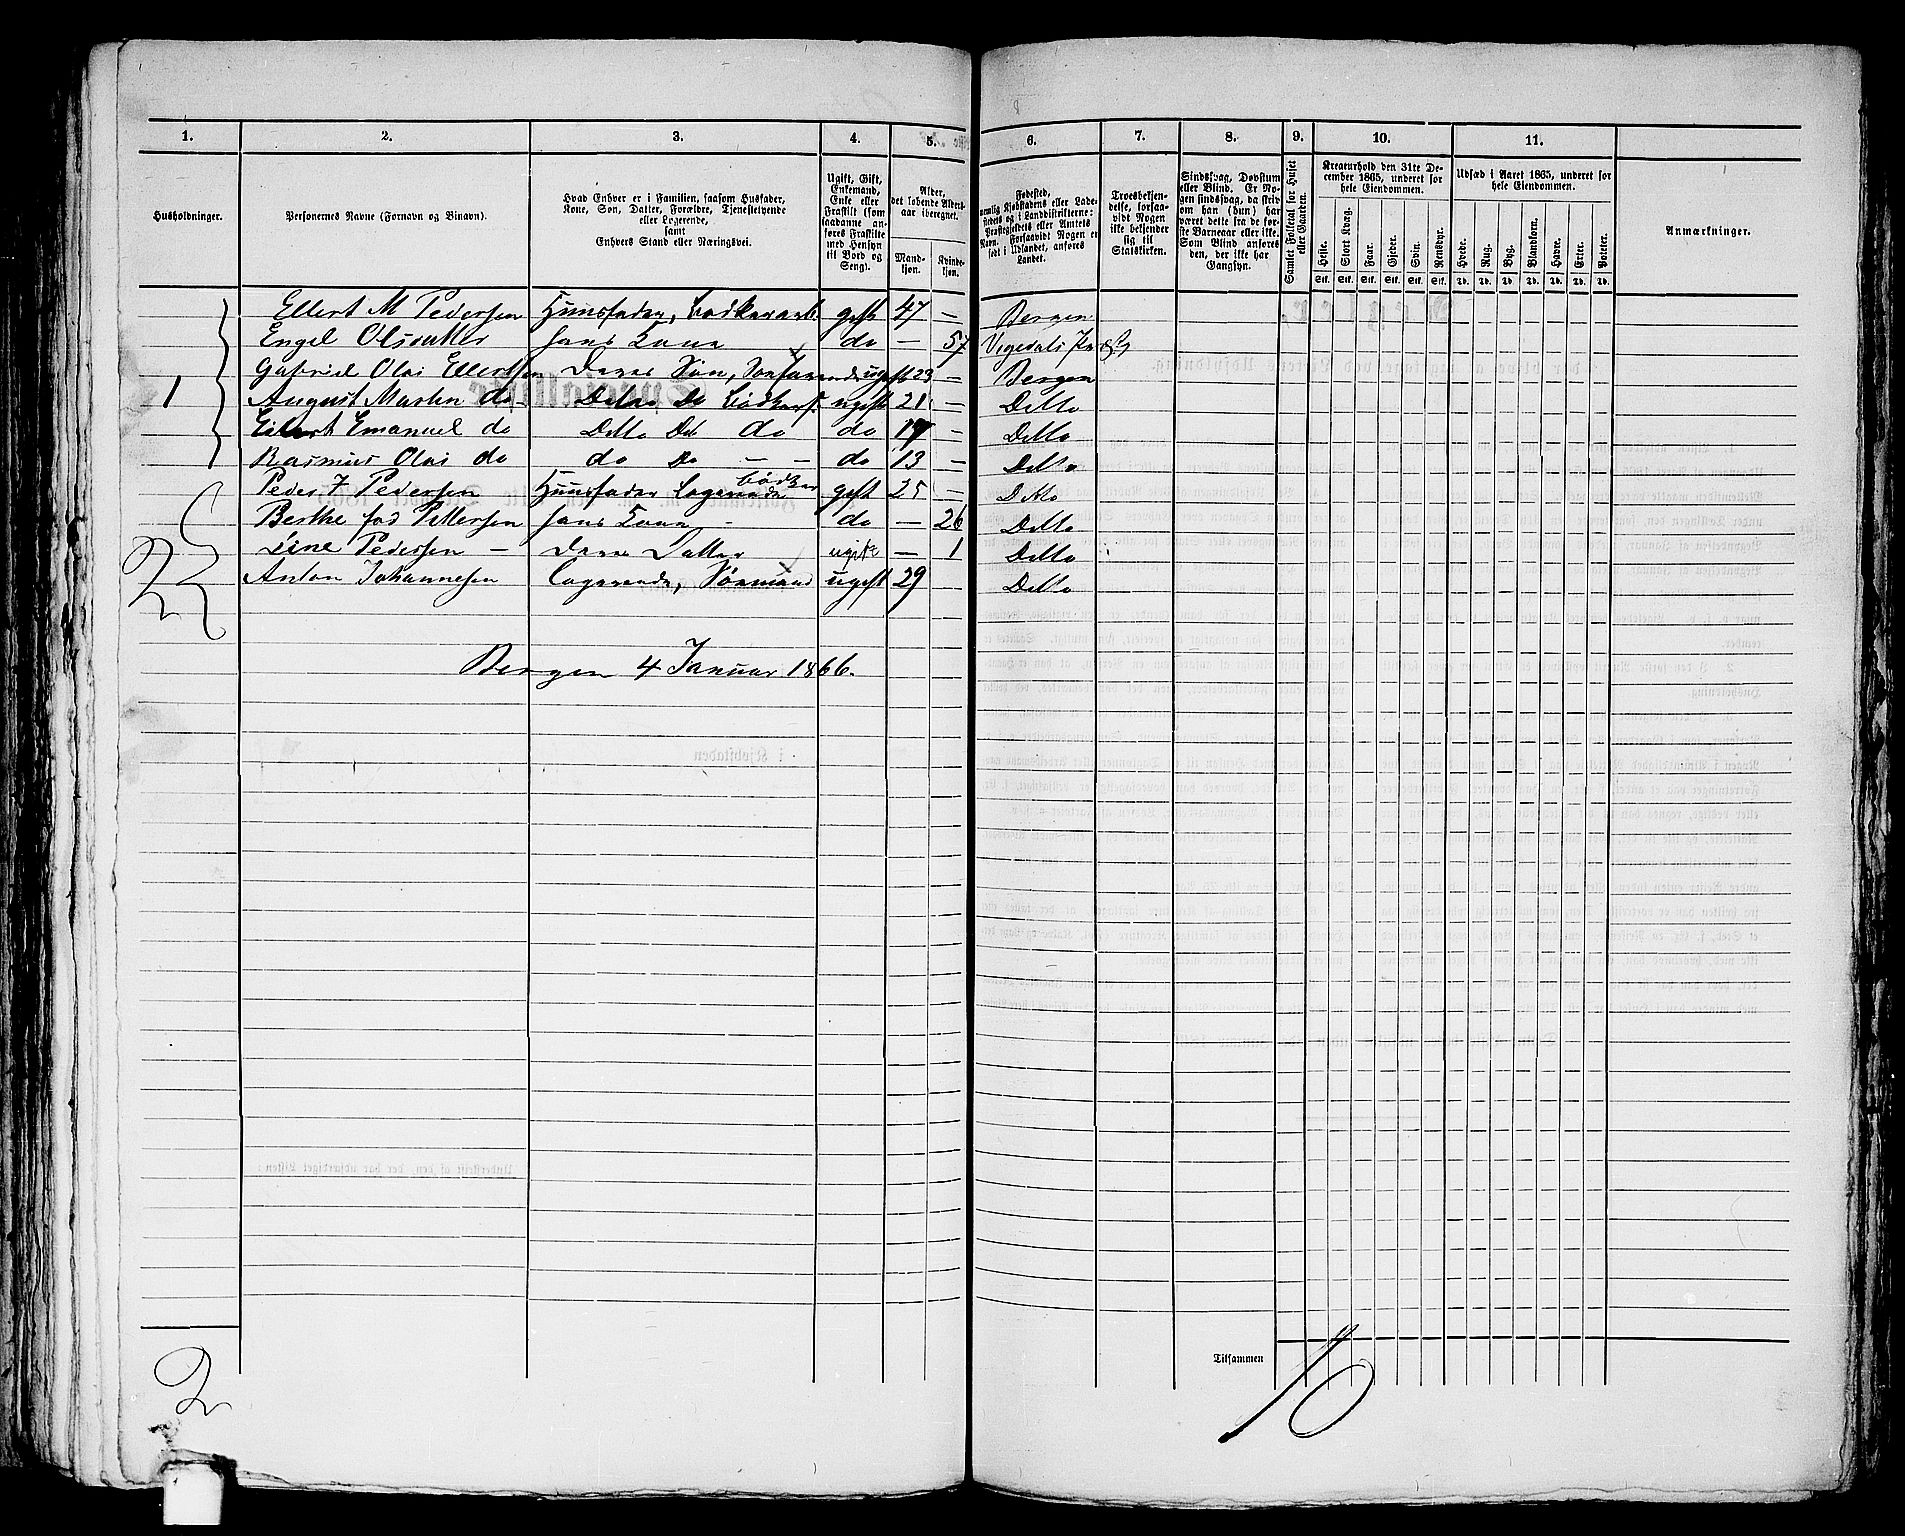 1. 2. 3. 4. 5. 6. 7. 8. 9. 10. 11.
Husholdninger.
Personernes Navne (Fornavn og Binavn).
Hvad Enhver er i Familien, saasom Husfader, Kone, Søn, Datter, Forældre, Tjenestetyende eller Logerende, samt Enhvers Stand eller Næringsvei.
Ugift, Gift, Enkemand, Enke eller Fraskilt (som saadanne anføres Fraskilte med Hensyn til Bord og Seng).
Alder, det løbende Alders-aar iberegnet.
Mandkjøn. Kvindekjøn.
Fødested, nemlig Kjøbstadens eller Ladestedets og i Landdistrikterne: Præstegjeldets eller Amtets Navn. Forsaavidt Nogen er født i Udlandet, anføres Landet.
Troesbekjendelse, forsaavidt Nogen ikke bekjender sig til Statskirken.
Sindssvag, Døvstum eller Blind. Er Nogen sindssvag, da skriv om han (hun) har været dette fra de første Barneaar eller ikke. Som Blind anføres den, der ikke har Gangsyn.
Samlet Folketal for Huset eller Gaarden.
Kreaturhold den 31te December 1865, underet for hele Eiendommen.
Heste. Stort Kvæg. Faar. Gjeder. Svin. Rensdyr.
Stk. Stk. Stk. Stk. Stk. Stk.
Udsæd i Aaret 1865, underet for hele Eiendommen.
Hvede. Rug. Byg. Blandkorn. Havre. Erter. Poteter.
Td. Td. Td. Td. Td. Td. Td.
Anmærkninger.
Ellert M Pedersen Huusfader, Bødkerarb. gift 47 — Bergen
Engel Olsdatter hans Kone do — 57
Gabriel Olai Ellertsen Deres Søn, ugift 23 — Bergen
1 August Martin do Detto Do Bødkers. ugift 21 — Detto
Eilert Emanuel do Detto Do do do 17 — Detto
Rasmus Olai do do Do — — do 13 — Detto
Peder J Pedersen Huusfader Logerende Bødker gift 25 — Ditto
Berthe Pettersen hans Kone - do — 26 Detto
Line Pedersen — Deres Datter ugift — 1 Detto
Anton Johannesen Logerende, Sømand ugift 29 Detto
Bergen 4 Januar 1866.
Tilsammen 10
2